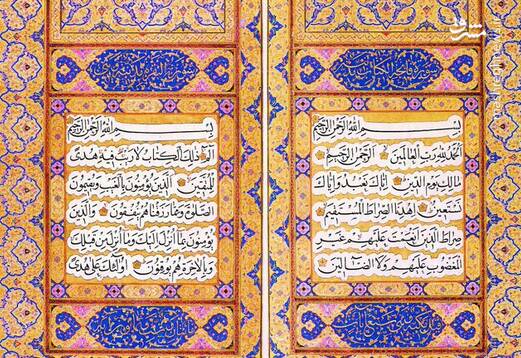 مشرق
mashreghnews.ir
سورة فاتحة الكتاب
بِسْمِ اللهِ الرَّحْمٰنِ الرَّحيمِ
اَلْحَمْدُ لِلّٰهِ رَبِّ الْعالَمينَ اَلرَّحْمٰنِ الرَّحيمِ
مالِكِ يَوْمِ الدّينِ اِيّاكَ نَعْبُدُ وَاِيّاكَ
نَسْتَعينُ اِهْدِنَا الصِّراطَ الْمُسْتَقيمَ
صِراطَ الَّذينَ اَنْعَمْتَ عَلَيْهِمْ غَيْرِ
الْمَغْضُوبِ عَلَيْهِمْ وَلَا الضّالّينَ
سورة البقرة
بِسْمِ اللهِ الرَّحْمٰنِ الرَّحيمِ
الٓمٓ ذٰلِكَ الْكِتابُ لا رَيْبَ فيهِ هُدًى
لِلْمُتَّقينَ اَلَّذينَ يُؤْمِنُونَ بِالْغَيْبِ وَيُقيمُونَ
الصَّلٰوةَ وَمِمّا رَزَقْناهُمْ يُنْفِقُونَ وَالَّذينَ
يُؤْمِنُونَ بِما اُنْزِلَ اِلَيْكَ وَما اُنْزِلَ مِنْ قَبْلِكَ
وَبِالْاٰخِرَةِ هُمْ يُوقِنُونَ اُولٰئِكَ عَلٰى هُدًى